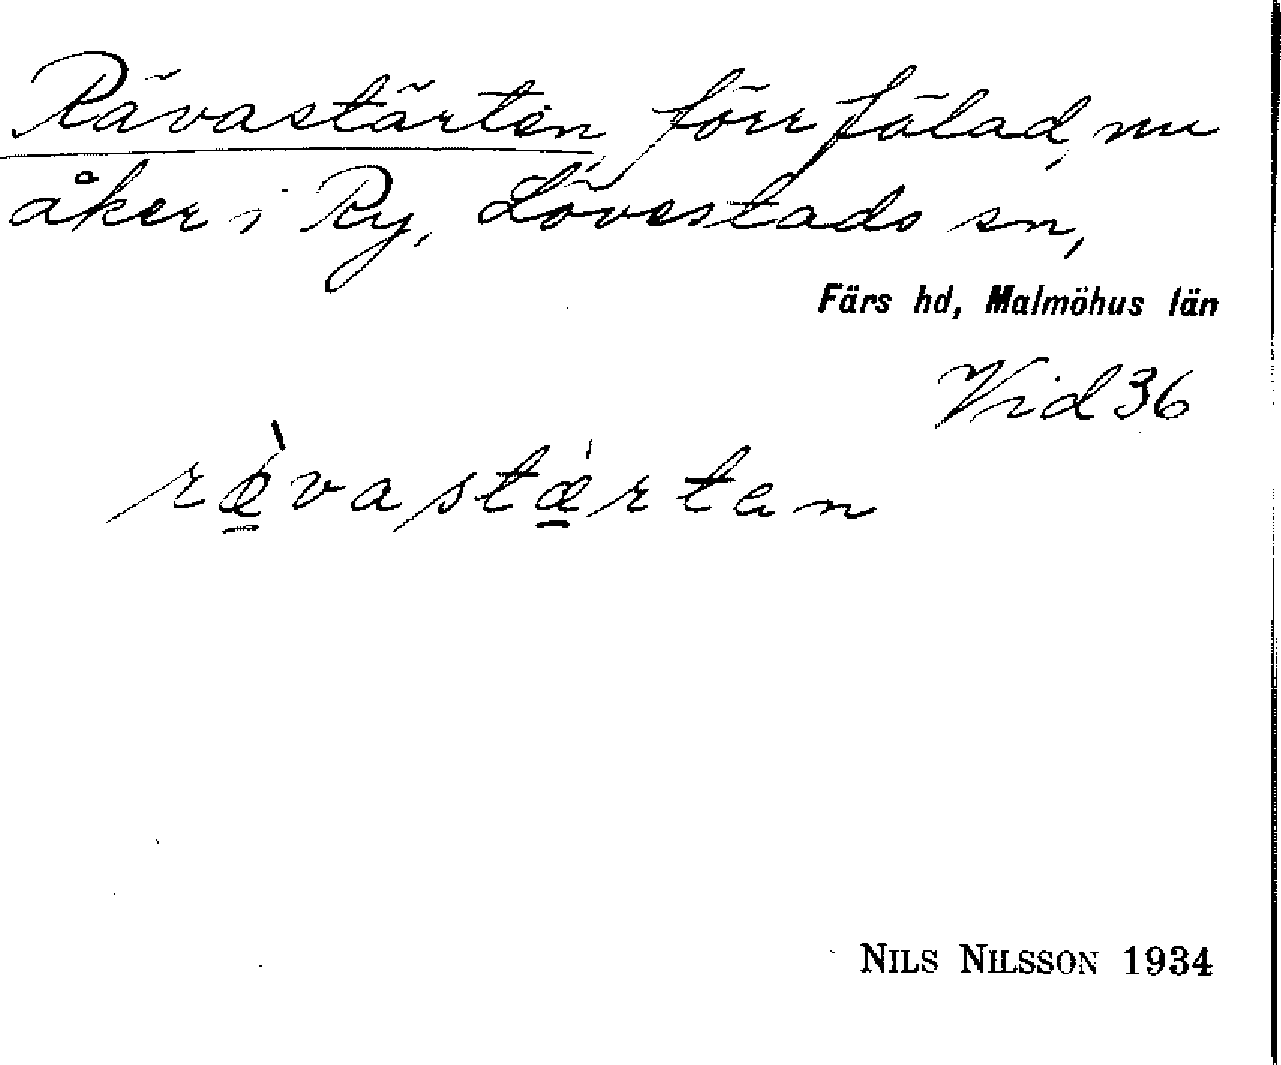 Rävastärten, förr fälad, nu
åker i Ry, Lövestads sn,
Färs hd, Malmöhus län
Vid 36
ræ̱̀vastǽ̱rten
NILS NILSSON 1934